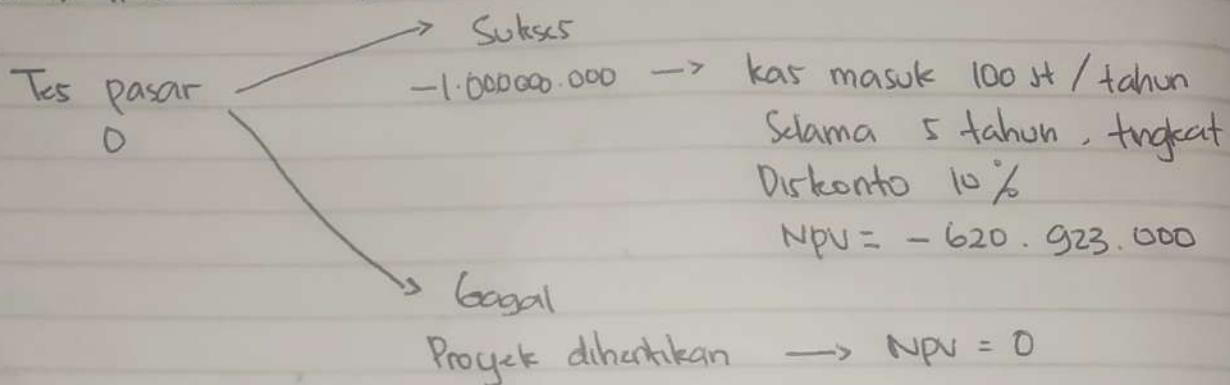 Sukses
Tes pasar
-1.000000.000 → kas masuk 100 jt / tahun
0
Selama 5 tahun, tingkat
Diskonto 10 %
NPV = - 620.923.000
Gagal
Proyek dihentikan → NPV = 0